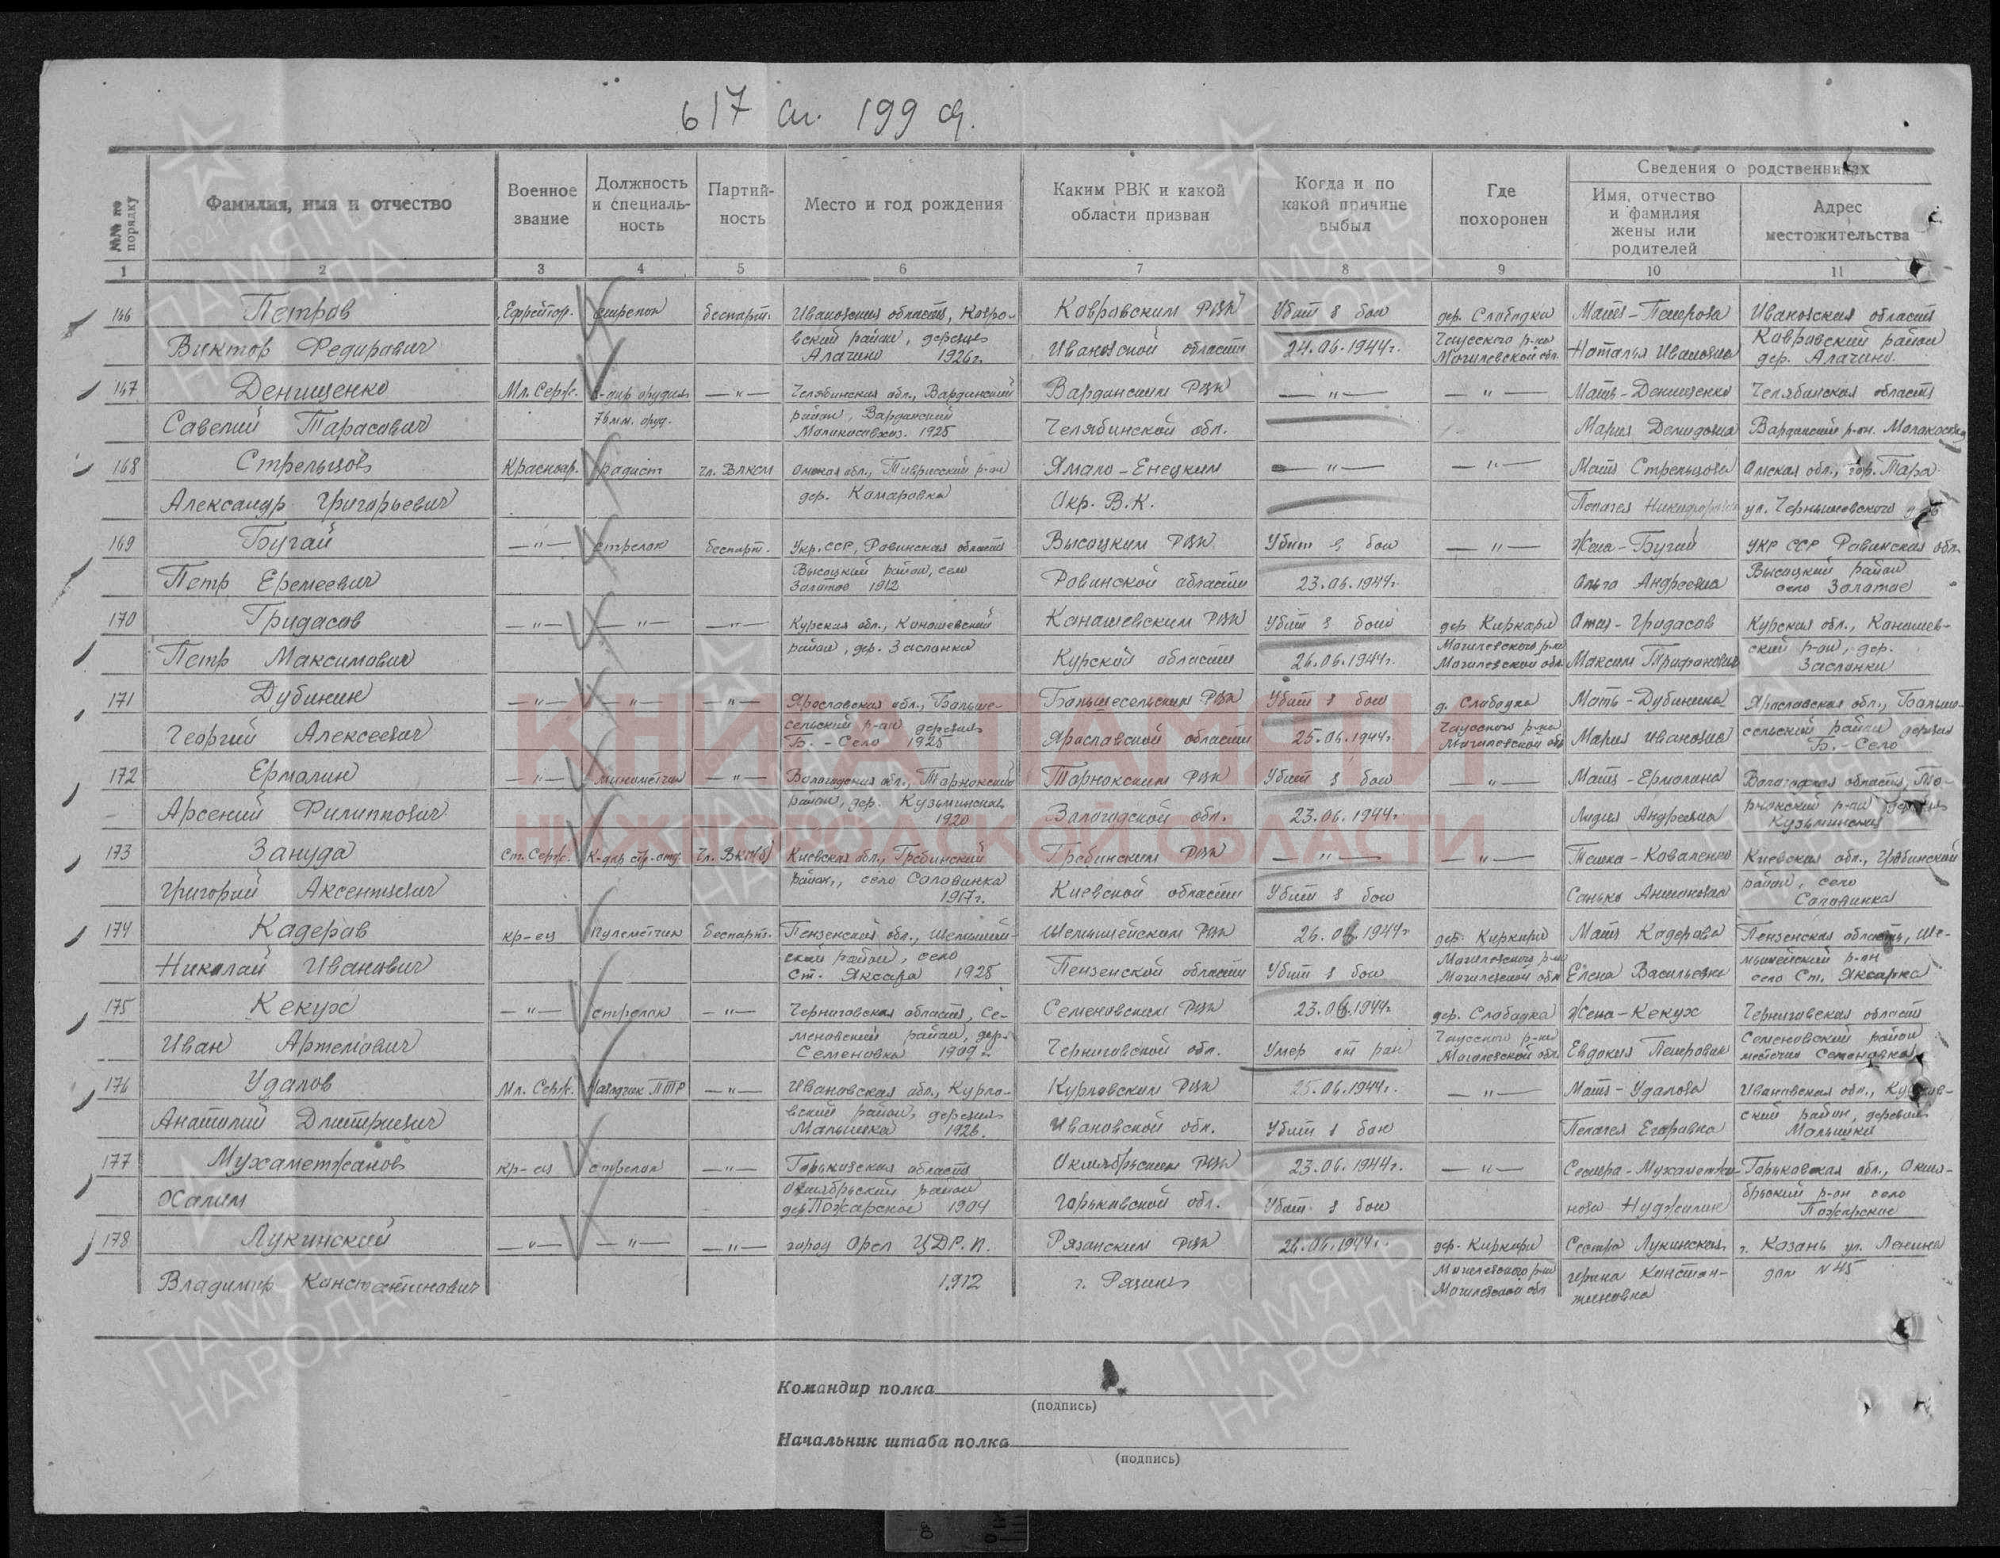 617 сп. 199 сд.
№№ по порядку
Фамилия, имя и отчество
Военное звание
Должность и специальность
Партийность
Место и год рождения
Каким РВК и какой области призван
Когда и по какой причине выбыл
Где похоронен
Сведения о родственниках
Имя, отчество и фамилия жены или родителей
Адрес местожительства
1 2 3 4 5 6 7 8 9 10 11
166 Петров Ефрейтор. стрелок беспарт. Ивановская область, Ковро- Ковровским РВК Убит в бою дер. Слободка Мать-Петрова Ивановская область
Виктор Федорович вский район, деревня Алачино 1926г. Ивановской области 24.06.1944г. Чаусского р-на Могилевской обл. Наталья Ивановна Ковровский район дер. Алачино.
167 Денищенко Мл. Серж. К-дир орудия —"— Челябинская обл., Варданский Варданским РВК —"— —"— Мать-Денищенко Челябинская область
Савелий Тарасович 76 мм. оруд. район, Варданский 1925 Челябинской обл. Мария Демидовна Варданский р-он.
168 Стрельцов Красноар. радист Чл. ВЛКСМ Омская обл., Тевризский р-он Ямало-Енецким —"— —"— Мать Стрельцова Омская обл., гор. Тара
Александр Григорьевич дер. Комаровка Окр. В.К. Пелагея ул. Чернышевского
169 Бугай —"— стрелок беспарт. Укр. ССР, Ровинская область Высоцким РВК Убит в бою —"— Жена-Бугай УКР ССР Ровинская обл.
Петр Еремеевич Высоцкий район, село Золотое 1912 Ровинской области 23.06.1944г. Ольга Андреевна Высоцкий район село Золотое
170 Гридасов —"— —"— —"— Курская обл., Конашевский Конашевским РВК Убит в бою дер. Киркори Отец-Гридасов Курская обл., Конашев-
Петр Максимович район, дер. Заслонки Курской области 26.06.1944г. Могилевского р-на Могилевской обл. Максим Трифонович ский р-он, дер. Заслонки
171 Дубинин —"— —"— —"— Ярославская обл., Больше- Большесельским РВК Убит в бою д. Слободка Мать-Дубинина Ярославская обл., Больше-
Георгий Алексеевич сельский р-он деревня Б.-Село 1925 Ярославской области 25.06.1944г. Чаусского р-на Могилевской обл. Мария Ивановна сельский район деревня Б.-Село
172 Ермолин —"— минометчик —"— Вологодская обл., Тарнокский Тарнокским РВК Убит в бою —"— Мать-Ермолина Вологодская область, Та-
Арсений Филиппович район, дер. Кузьминская 1920 Вологодской обл. 23.06.1944г. Лидия Андреевна рнокский р-он деревня Кузьминская
173 Зануда Ст. Серж. К-дир стр. отд. Чл. ВКП(б) Киевская обл., Гребинский Гребинским РВК —"— —"— Тешка-Коваленко Киевская обл., Гребинский
Григорий Аксентиевич район, село Соловинка 1917г. Киевской области Убит в бою Санько Антоновна район, село Соловинка
174 Кадеров кр-ец пулеметчик беспарт. Пензенская обл., Шемышей- Шемышейским РВК 26.06.1944г дер. Киркори Мать Кадерова Пензенская область, Ше-
Николай Иванович ский район, село Ст. Яксарка 1925 Пензенской области Убит в бою Могилевского р-на Могилевской обл. Елена Васильевна мышейский р-он село Ст. Яксарка
175 Кекух —"— стрелок —"— Черниговская область, Се- Семеновским РВК 23.06.1944г. дер. Слободка Жена-Кекух Черниговская область
Иван Артемович меновский район, дер. Семеновка 1909г. Черниговской обл. Умер от ран Чаусского р-на Могилевской обл. Евдокия Петровна Семеновский район местечко Семеновка
176 Удалов Мл. Серж. Наводчик ПТР —"— Ивановская обл., Курло- Курловским РВК 25.06.1944г. —"— Мать-Удалова Ивановская обл.,
Анатолий Дмитриевич вский район, деревня Малышка 1926. Ивановской обл. Убит в бою Пелагея Егоровна ский район, деревня Малышки
177 Мухаметжанов кр-ец стрелок —"— Горьковская область Октябрьским РВК 23.06.1944г. —"— Сестра-Мухаметжа- Горьковская обл., Октя-
Халим Октябрьский район дер Пожарское 1904 Горьковской обл. Убит в бою нова брьский р-он село Пожарское
178 Лукинский —"— —"— —"— город Орел Ц.Д.Р.П. Рязанским РВК 26.06.1944г. дер. Киркори Сестра Лукинская г. Казань ул. Ленина
Владимир Константинович 1912 г. Рязань Могилевского р-на Могилевской обл Ирина Констан- тиновна дом №45
Командир полка
(подпись)
Начальник штаба полка
(подпись)
КНИГА ПАМЯТИ
НИЖЕГОРОДСКОЙ ОБЛАСТИ
ПАМЯТЬ НАРОДА